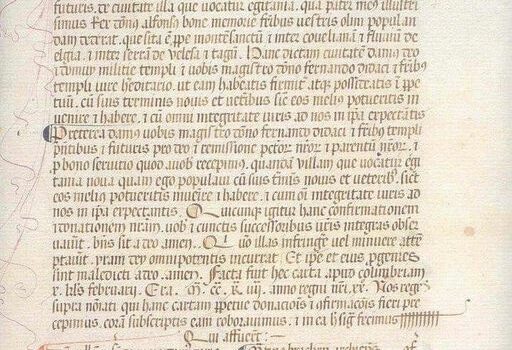 futuris. de ciuitate illa que uocatur egitania. qua pater meus illustri
simus Rex dõnus alfonsus bone memorie fribus uestris olim populan
dam dederat. que sita é ppe montẽsanctũ i inter couelianã i fluuiũ de
elgia. i inter serrã de uelesa i tagũ. Hanc dictam ciuitatẽ damus deo
i domui militie templi i uobis magistro dõno fernando didaci i fribus
templi iure hereditario. ut eam habeatis firmit atque possideatis i ppe
tuũ. cũ suis terminis nouis et uetibus sic eos melius potueritis in
uenire i habere. i cũ omni integritate iuris ad nos in ipa expectãtis
Preterea damus uobis magistro dõno fernando didaci i fribus templi
psentibus i futuris pro deo i remissione pctor nror i parentũ nror. i
p bono seruitio quod a uobis recepimus. quandã uillam que uocatur egi
tania noua quam ego populaui cũ suis tminis nouis et ueteribus. sict
eos melius potueritis inuenire i habere. i cum oi integritate iuris ad
nos in ipa expectantis. Quicunque igitur hanc confirmationem
i donationem nram. uobis i cunctis successoribus uris integras obser
uauit. bnus sit a deo amen. Qui uo illas infringe uel minuere attẽ
ptauit. iram dei omnipotentis incurrat. Et ipe et eius pgenies
sint maledicti a deo. amen. Facta fuit hec carta apud colimbriam
februarii. Era. Nos reges
supra nõiati qui hanc cartam ppetue donacionis i afirmacõis fieri pre
cepimus. corã subscriptis eam roborauimus. i in ea h sig fecimus
Qui affuert :-